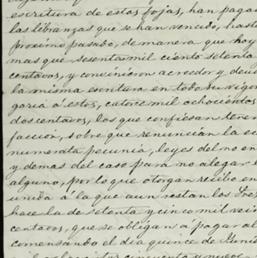 escritura de estas fojas, han pagado
las libranzas que se han vencido, hasta
proximo pasado, de manera que hoy
mas que sesenta mil ciento setenta
centavos, y convinieron acreedor y deu
la misma escritura en todo su vigor
goria á estos, catorce mil ochocientos
dos centavos, los que confiesan tener
faccion, sobre que renuncian la
numerata pecunia, leyes del no en
y demas del caso para no alegar
alguno, por lo que otorgan recibo en
unida á la que aun restan los Sres
hace la de setenta y cinco mil vein
centavos, que se obligan á pagar al
comensando el dia quince de Junio
cincuenta y nueve